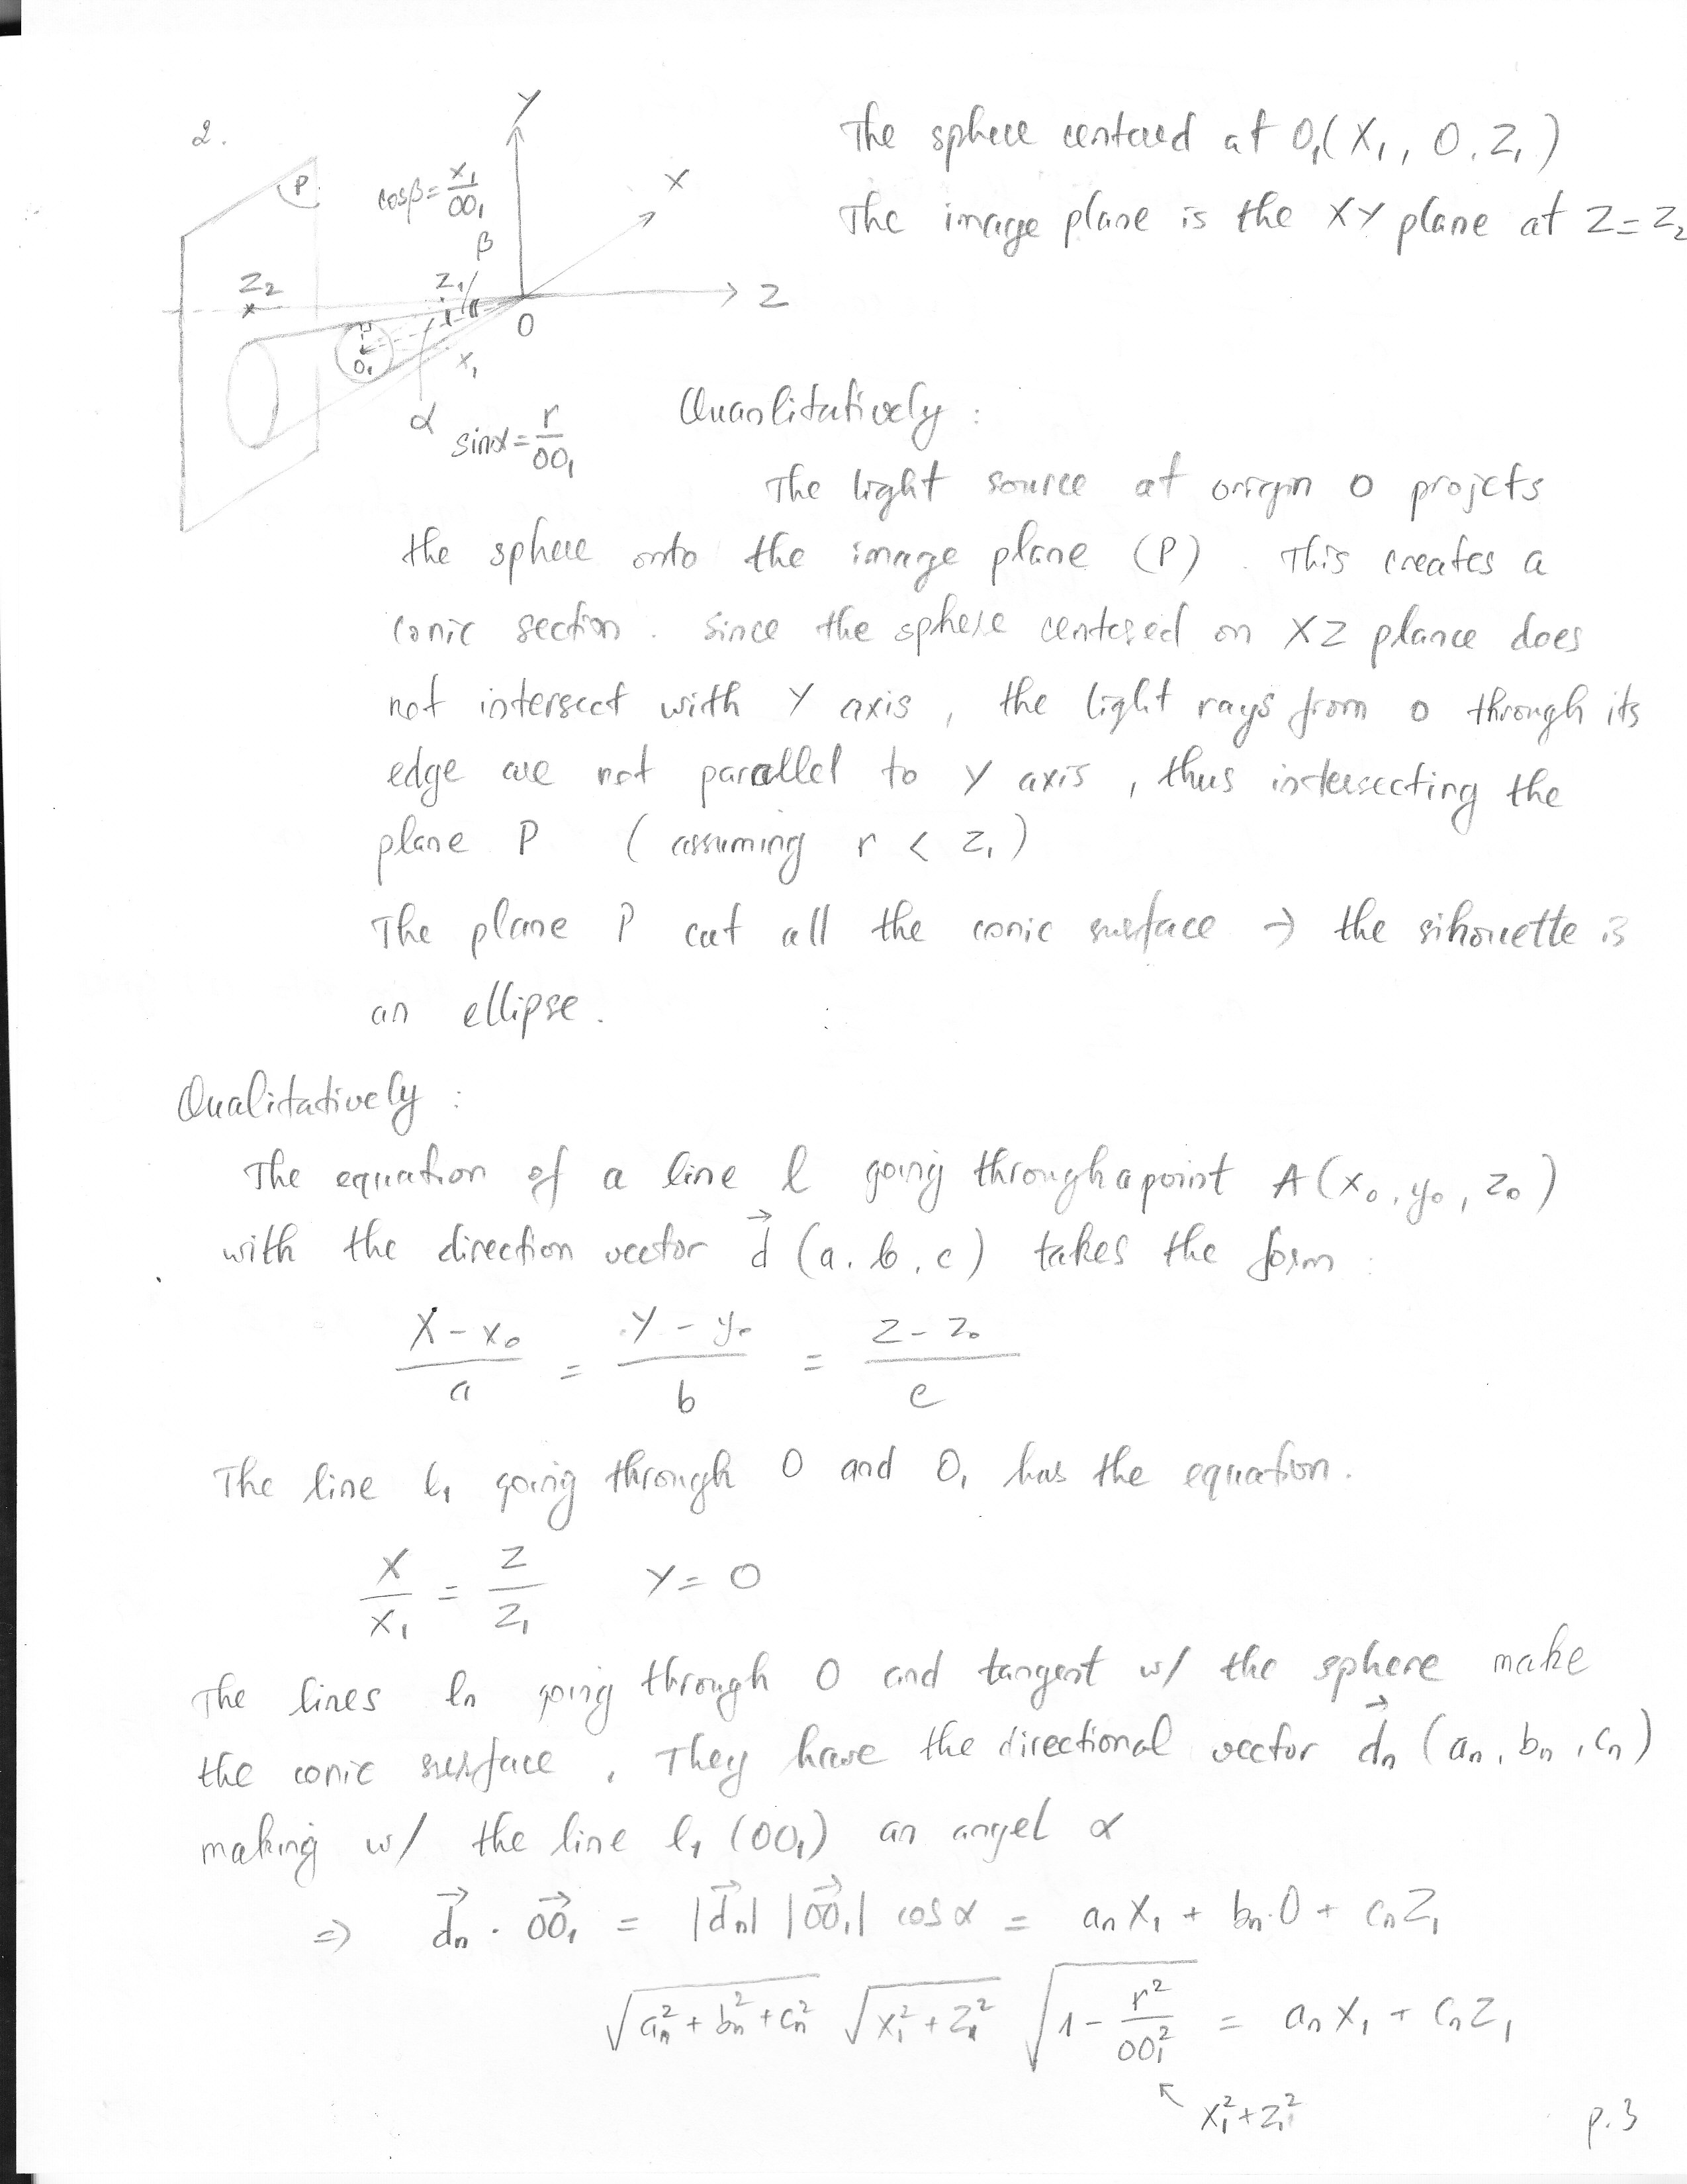 2.
Y
X
Z
P
cosβ = X₁/OO₁
β
Z₂
Z₁
O
O₁
X₁
α
sinα = r/OO₁
The sphere centered at O₁(X₁, 0, Z₁)
The image plane is the XY plane at Z = Z₂
Quanlitatively :
The light source at origin O projcts
the sphere onto the image plane (P). This creates a
conic section. Since the sphere centered on XZ plance does
not intersect with Y axis, the light rays from O through its
edge are not parallel to Y axis, thus intersecting the
plane P (assuming r < Z₁)
The plane P cut all the conic surface → the sihouette is
an ellipse.
Qualitatively :
The equation of a line l going through a point A(x₀, y₀, z₀)
with the direction vector d⃗ (a, b, c) takes the form :
(X - x₀)/a = (Y - y₀)/b = (Z - z₀)/c
The line l₁ going through O and O₁ has the equation.
X/X₁ = Z/Z₁ Y = 0
The lines ln going through O and tangent w/ the sphere make
the conic surface, They have the directional vector d⃗n (an, bn, cn)
making w/ the line l₁ (OO₁) an angel α
⇒ d⃗n · OO₁⃗ = |d⃗n| |OO₁⃗| cos α = an X₁ + bn·0 + cn Z₁
√(an² + bn² + cn²) √(X₁² + Z₁²) √(1 - r²/OO₁²) = an X₁ + cn Z₁
X₁² + Z₁²
p.3